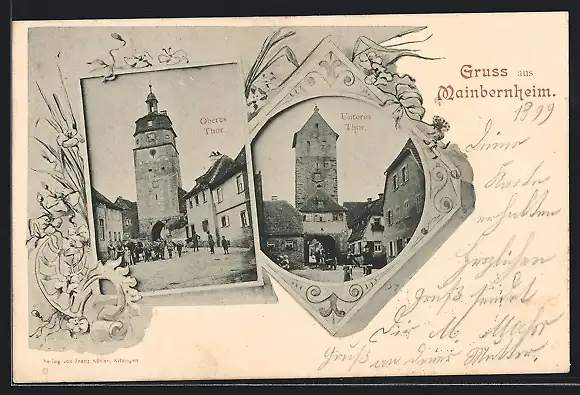 Gruss aus
Mainbernheim.
1899
Oberes
Thor.
Unteres
Thor.
Deine
Karte
erhalten
Herzlichen
Gruß sendet
Dir M.
Gruß an deine Mutter.
Verlag von Franz Köhler, Kitzingen